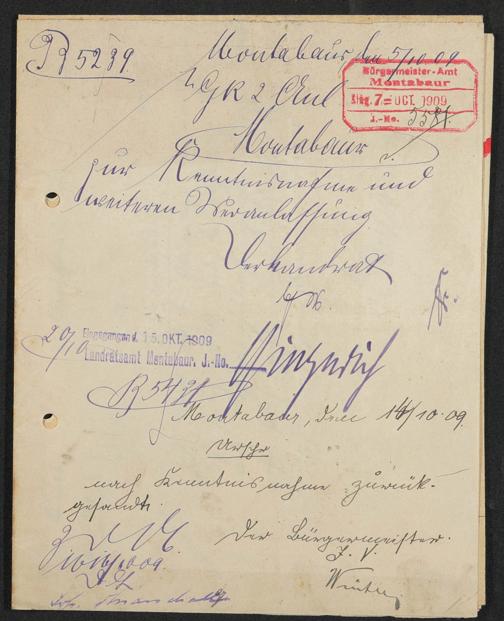 R 5289
Montabaur, den 5/10.09.
Bürgermeister-Amt
Montabaur
Eing. 7= OCT. 1909
J.-No. 5581.
Montabaur
zur Kenntnisnahme und
weiteren Veranlassung
Der Landrat
20/10
Eingegangen d. 15. OKT. 1909
Landratsamt Montabaur. J.-No.
R 5421
Montabaur, den 14/10.09.
Urschr.
nach Kenntnisnahme zurück-
gesandt.
Der Bürgermeister.
J. V.